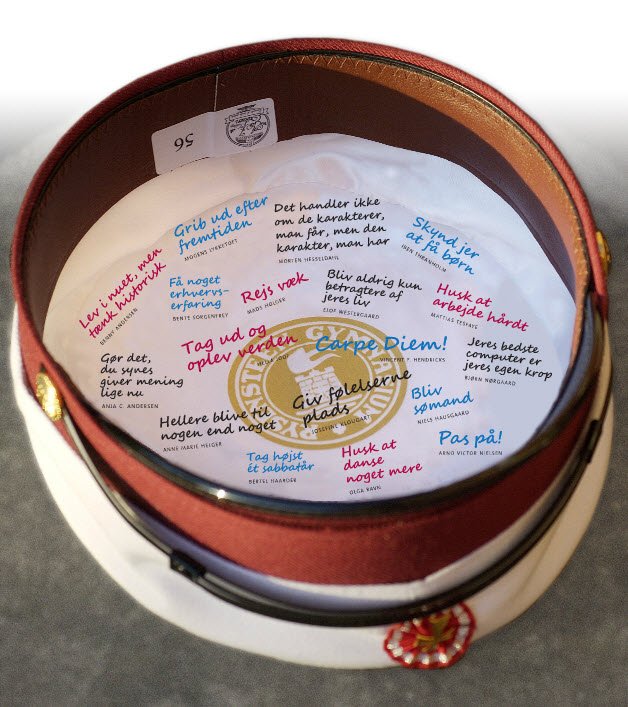 56
Grib ud efter
fremtiden
MOGENS LYKKETOFT
Det handler ikke
om de karakterer,
man får, men den
karakter, man har
MORTEN HESSELDAHL
Skynd jer
at få børn
IBEN THRANHOLM
Lev i nuet, men
tænk historisk
BENNY ANDERSEN
Få noget
erhvervs-
erfaring
BENTE SORGENFREY
Rejs væk
MADS HOLGER
Bliv aldrig kun
betragtere af
jeres liv
ELOF WESTERGAARD
Husk at
arbejde hårdt
MATTIAS TESFAYE
Gør det,
du synes
giver mening
lige nu
ANJA C. ANDERSEN
Tag ud og
oplev verden
Carpe Diem!
VINCENT F. HENDRICKS
Jeres bedste
computer er
jeres egen krop
BJØRN NØRGAARD
Hellere blive til
nogen end noget
ANNE MARIE HELGER
Giv følelserne
plads
JOSEFINE KLOUGART
Bliv
sømand
NIELS HAUSGAARD
Tag højst
ét sabbatår
BERTEL HAARDER
Husk at
danse
noget mere
OLGA RAVN
Pas på!
ARNO VICTOR NIELSEN